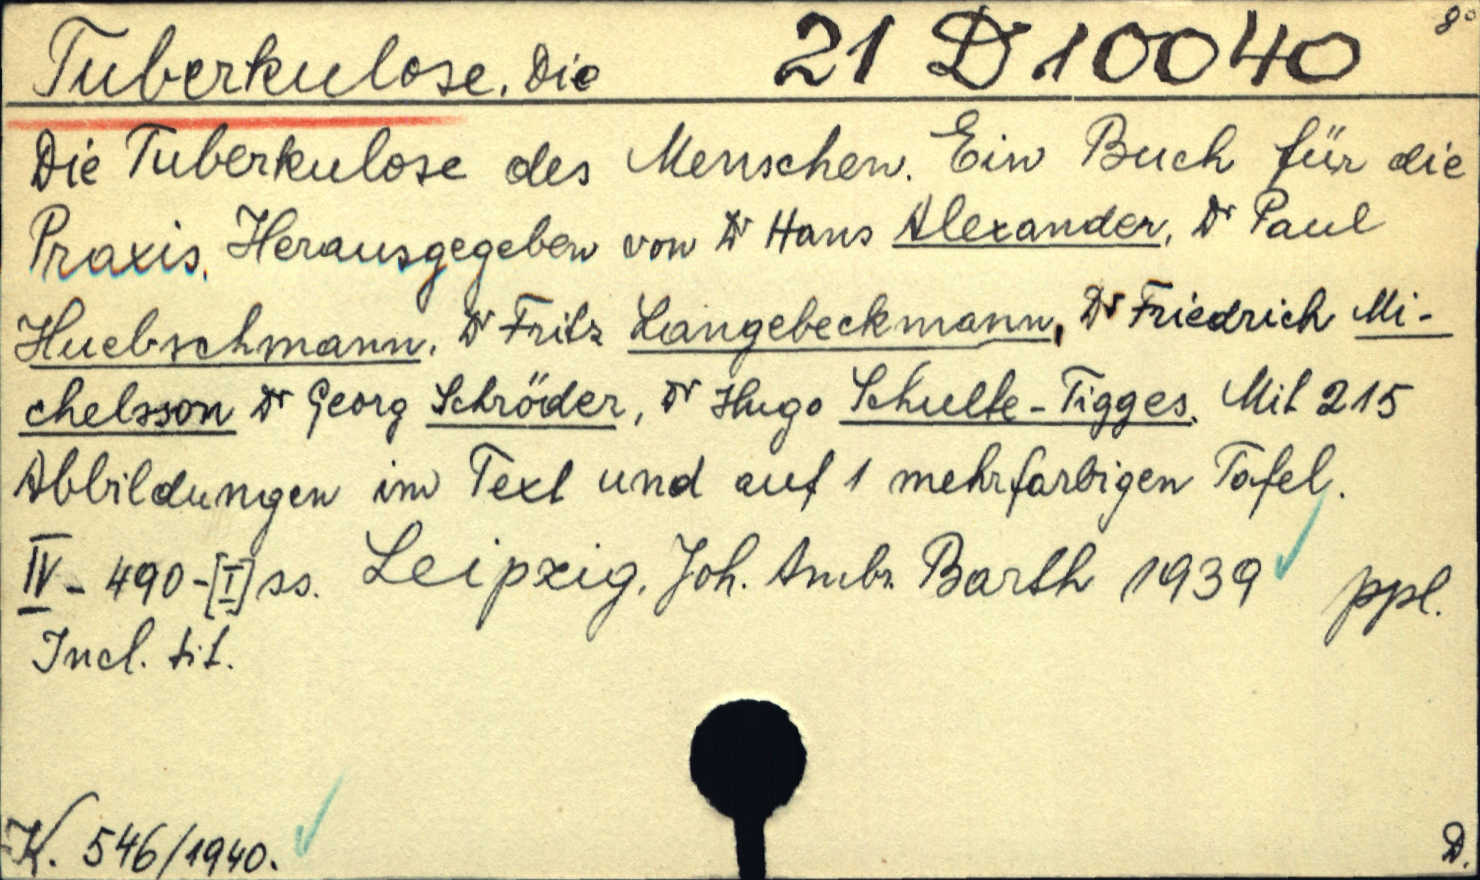 Tuberkulose, Die 21 D 10040 8°
Die Tuberkulose des Menschen. Ein Buch für die
Praxis. Herausgegeben von Dr Hans Alexander, Dr Paul
Huebschmann, Dr Fritz Langebeckmann, Dr Friedrich Mi-
chelsson Dr Georg Schröder, Dr Hugo Schulte-Tigges. Mit 215
Abbildungen im Text und auf 1 mehrfarbigen Tafel.
IV - 490 - [I] ss. Leipzig, Joh. Ambr. Barth 1939 ppl.
Incl. tit.
K. 546/1940. D.